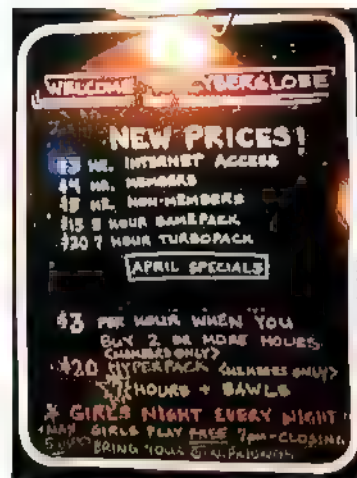 WELCOME CYBERGLOBE
NEW PRICES!
$3 HR. INTERNET ACCESS
$4 HR. MEMBERS
$5 HR. NON-MEMBERS
$15 5 HOUR GAMEPACK
$20 7 HOUR TURBOPACK
APRIL SPECIALS
$3 PER HOUR WHEN YOU
BUY 2 OR MORE HOURS
<MEMBERS ONLY>
$20 HYPERPACK <MEMBERS ONLY>
HOURS + BAWLS
* GIRLS NIGHT EVERY NIGHT
GIRLS PLAY FREE 7PM-CLOSING
BRING YOUR GIRLFRIENDS